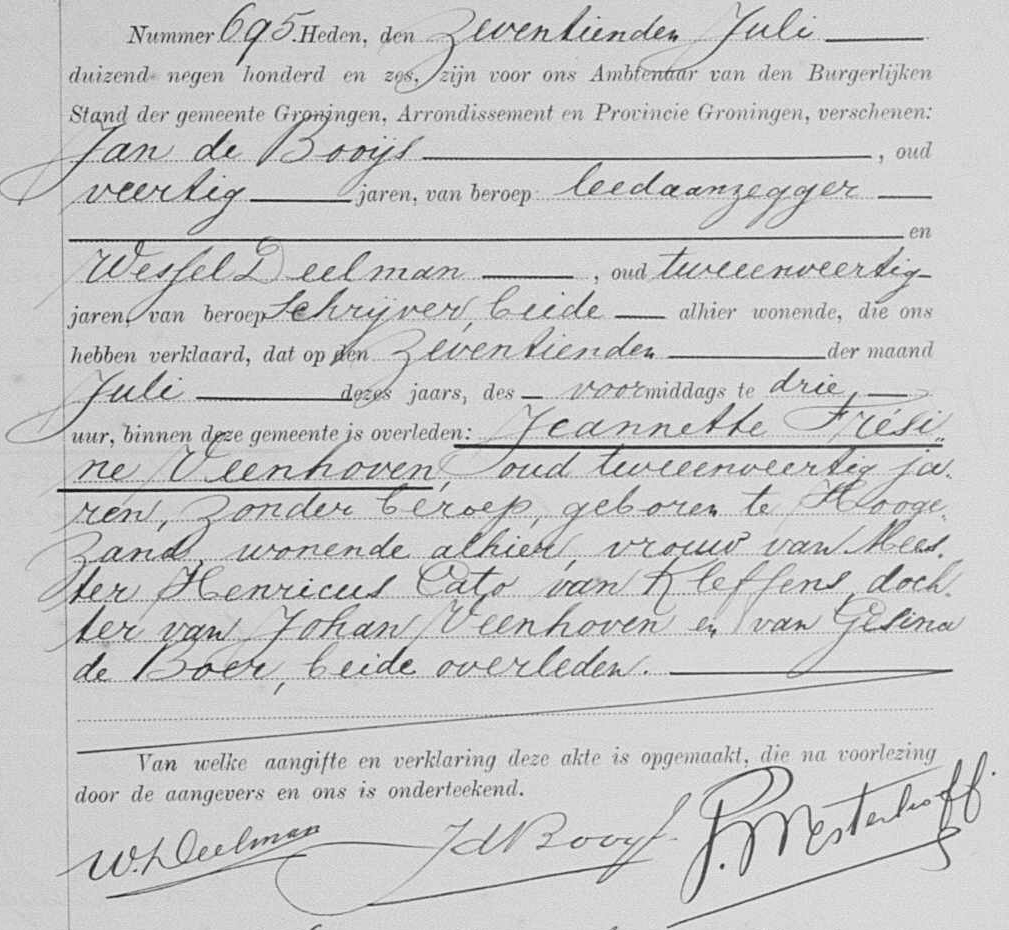 Nummer 695. Heden, den Zeventienden Juli
duizend negen honderd en zes, zijn voor ons Ambtenaar van den Burgerlijken
Stand der gemeente Groningen, Arrondissement en Provincie Groningen, verschenen:
Jan de Booijs, oud
veertig jaren, van beroep leedaanzegger
en
Wessel Deelman, oud tweeenveertig
jaren, van beroep schrijver, beide alhier wonende, die ons
hebben verklaard, dat op den zeventienden der maand
Juli dezes jaars, des voormiddags te drie,
uur, binnen deze gemeente is overleden: Jeannette Frési„
ne Veenhoven, oud tweeenveertig ja„
ren, zonder beroep, geboren te Hooge„
zand, wonende alhier, vrouw van Mees„
ter Henricus Cato van Kleffens, doch„
ter van Johan Veenhoven en van Gesina
de Boer, beide overleden.
Van welke aangifte en verklaring deze akte is opgemaakt, die na voorlezing
door de aangevers en ons is onderteekend.
W. Deelman JdBooys P. Westerhoff.